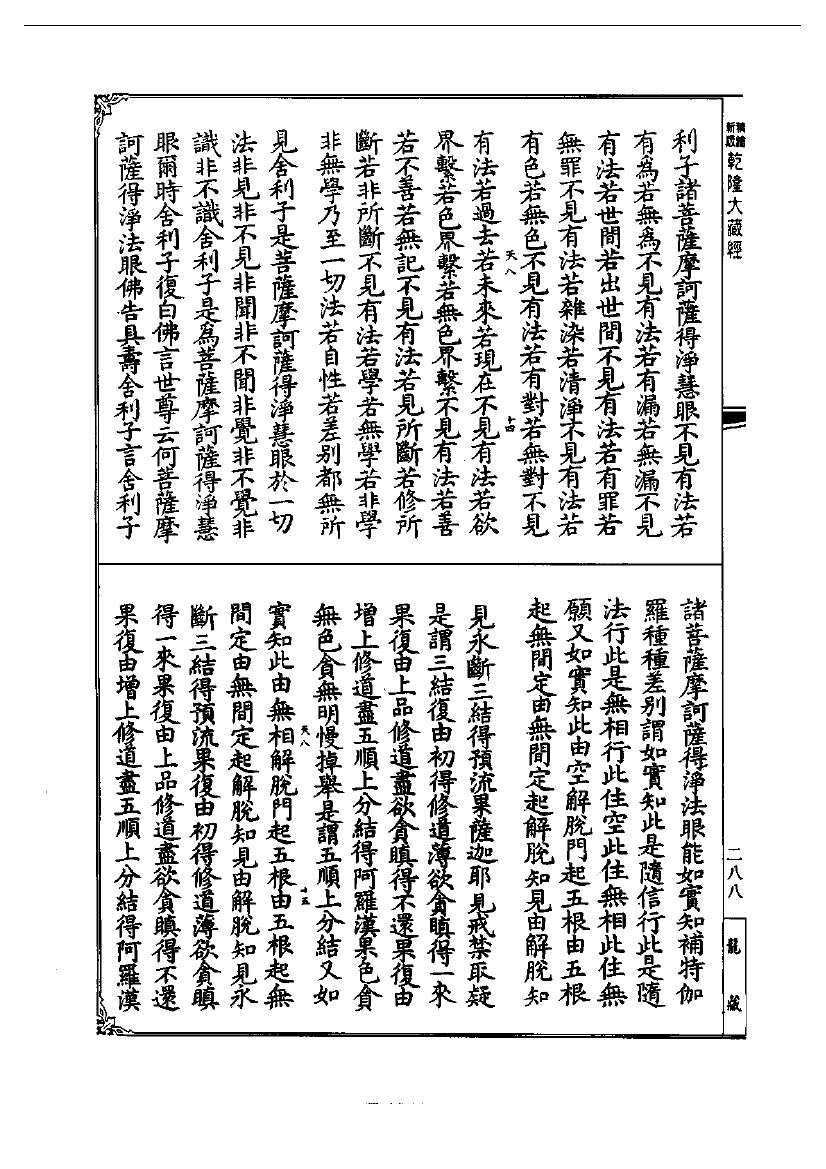 精繪
新版 乾隆大藏經
利子諸菩薩摩訶薩得淨慧眼不見有法若
有為若無為不見有法若有漏若無漏不見
有法若世間若出世間不見有法若有罪若
無罪不見有法若雜染若清淨不見有法若
有色若無色不見有法若有對若無對不見
天八
十四
有法若過去若未來若現在不見有法若欲
界繫若色界繫若無色界繫不見有法若善
若不善若無記不見有法若見所斷若修所
斷若非所斷不見有法若學若無學若非學
非無學乃至一切法若自性若差別都無所
見舍利子是菩薩摩訶薩得淨慧眼於一切
法非見非不見非聞非不聞非覺非不覺非
識非不識舍利子是為菩薩摩訶薩得淨慧
眼爾時舍利子復白佛言世尊云何菩薩摩
訶薩得淨法眼佛告具壽舍利子言舍利子
諸菩薩摩訶薩得淨法眼能如實知補特伽
羅種種差別謂如實知此是隨信行此是隨
法行此是無相行此住空此住無相此住無
願又如實知此由空解脫門起五根由五根
起無間定由無間定起解脫知見由解脫知
見永斷三結得預流果薩迦耶見戒禁取疑
是謂三結復由初得修道薄欲貪瞋得一來
果復由上品修道盡欲貪瞋得不還果復由
增上修道盡五順上分結得阿羅漢果色貪
無色貪無明慢掉舉是謂五順上分結又如
天八
十五
實知此由無相解脫門起五根由五根起無
間定由無間定起解脫知見由解脫知見永
斷三結得預流果復由初得修道薄欲貪瞋
得一來果復由上品修道盡欲貪瞋得不還
果復由增上修道盡五順上分結得阿羅漢
二八八
龍藏